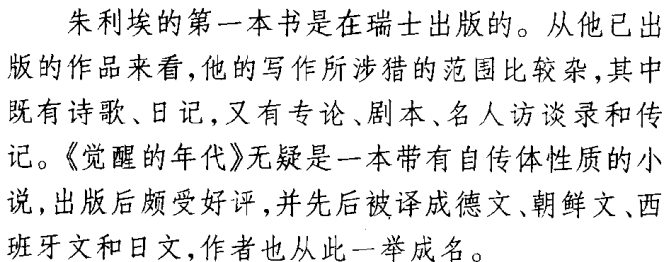 朱利埃的第一本书是在瑞士出版的。从他已出
版的作品来看,他的写作所涉猎的范围比较杂,其中
既有诗歌、日记,又有专论、剧本、名人访谈录和传
记。《觉醒的年代》无疑是一本带有自传体性质的小
说,出版后颇受好评,并先后被译成德文、朝鲜文、西
班牙文和日文,作者也从此一举成名。